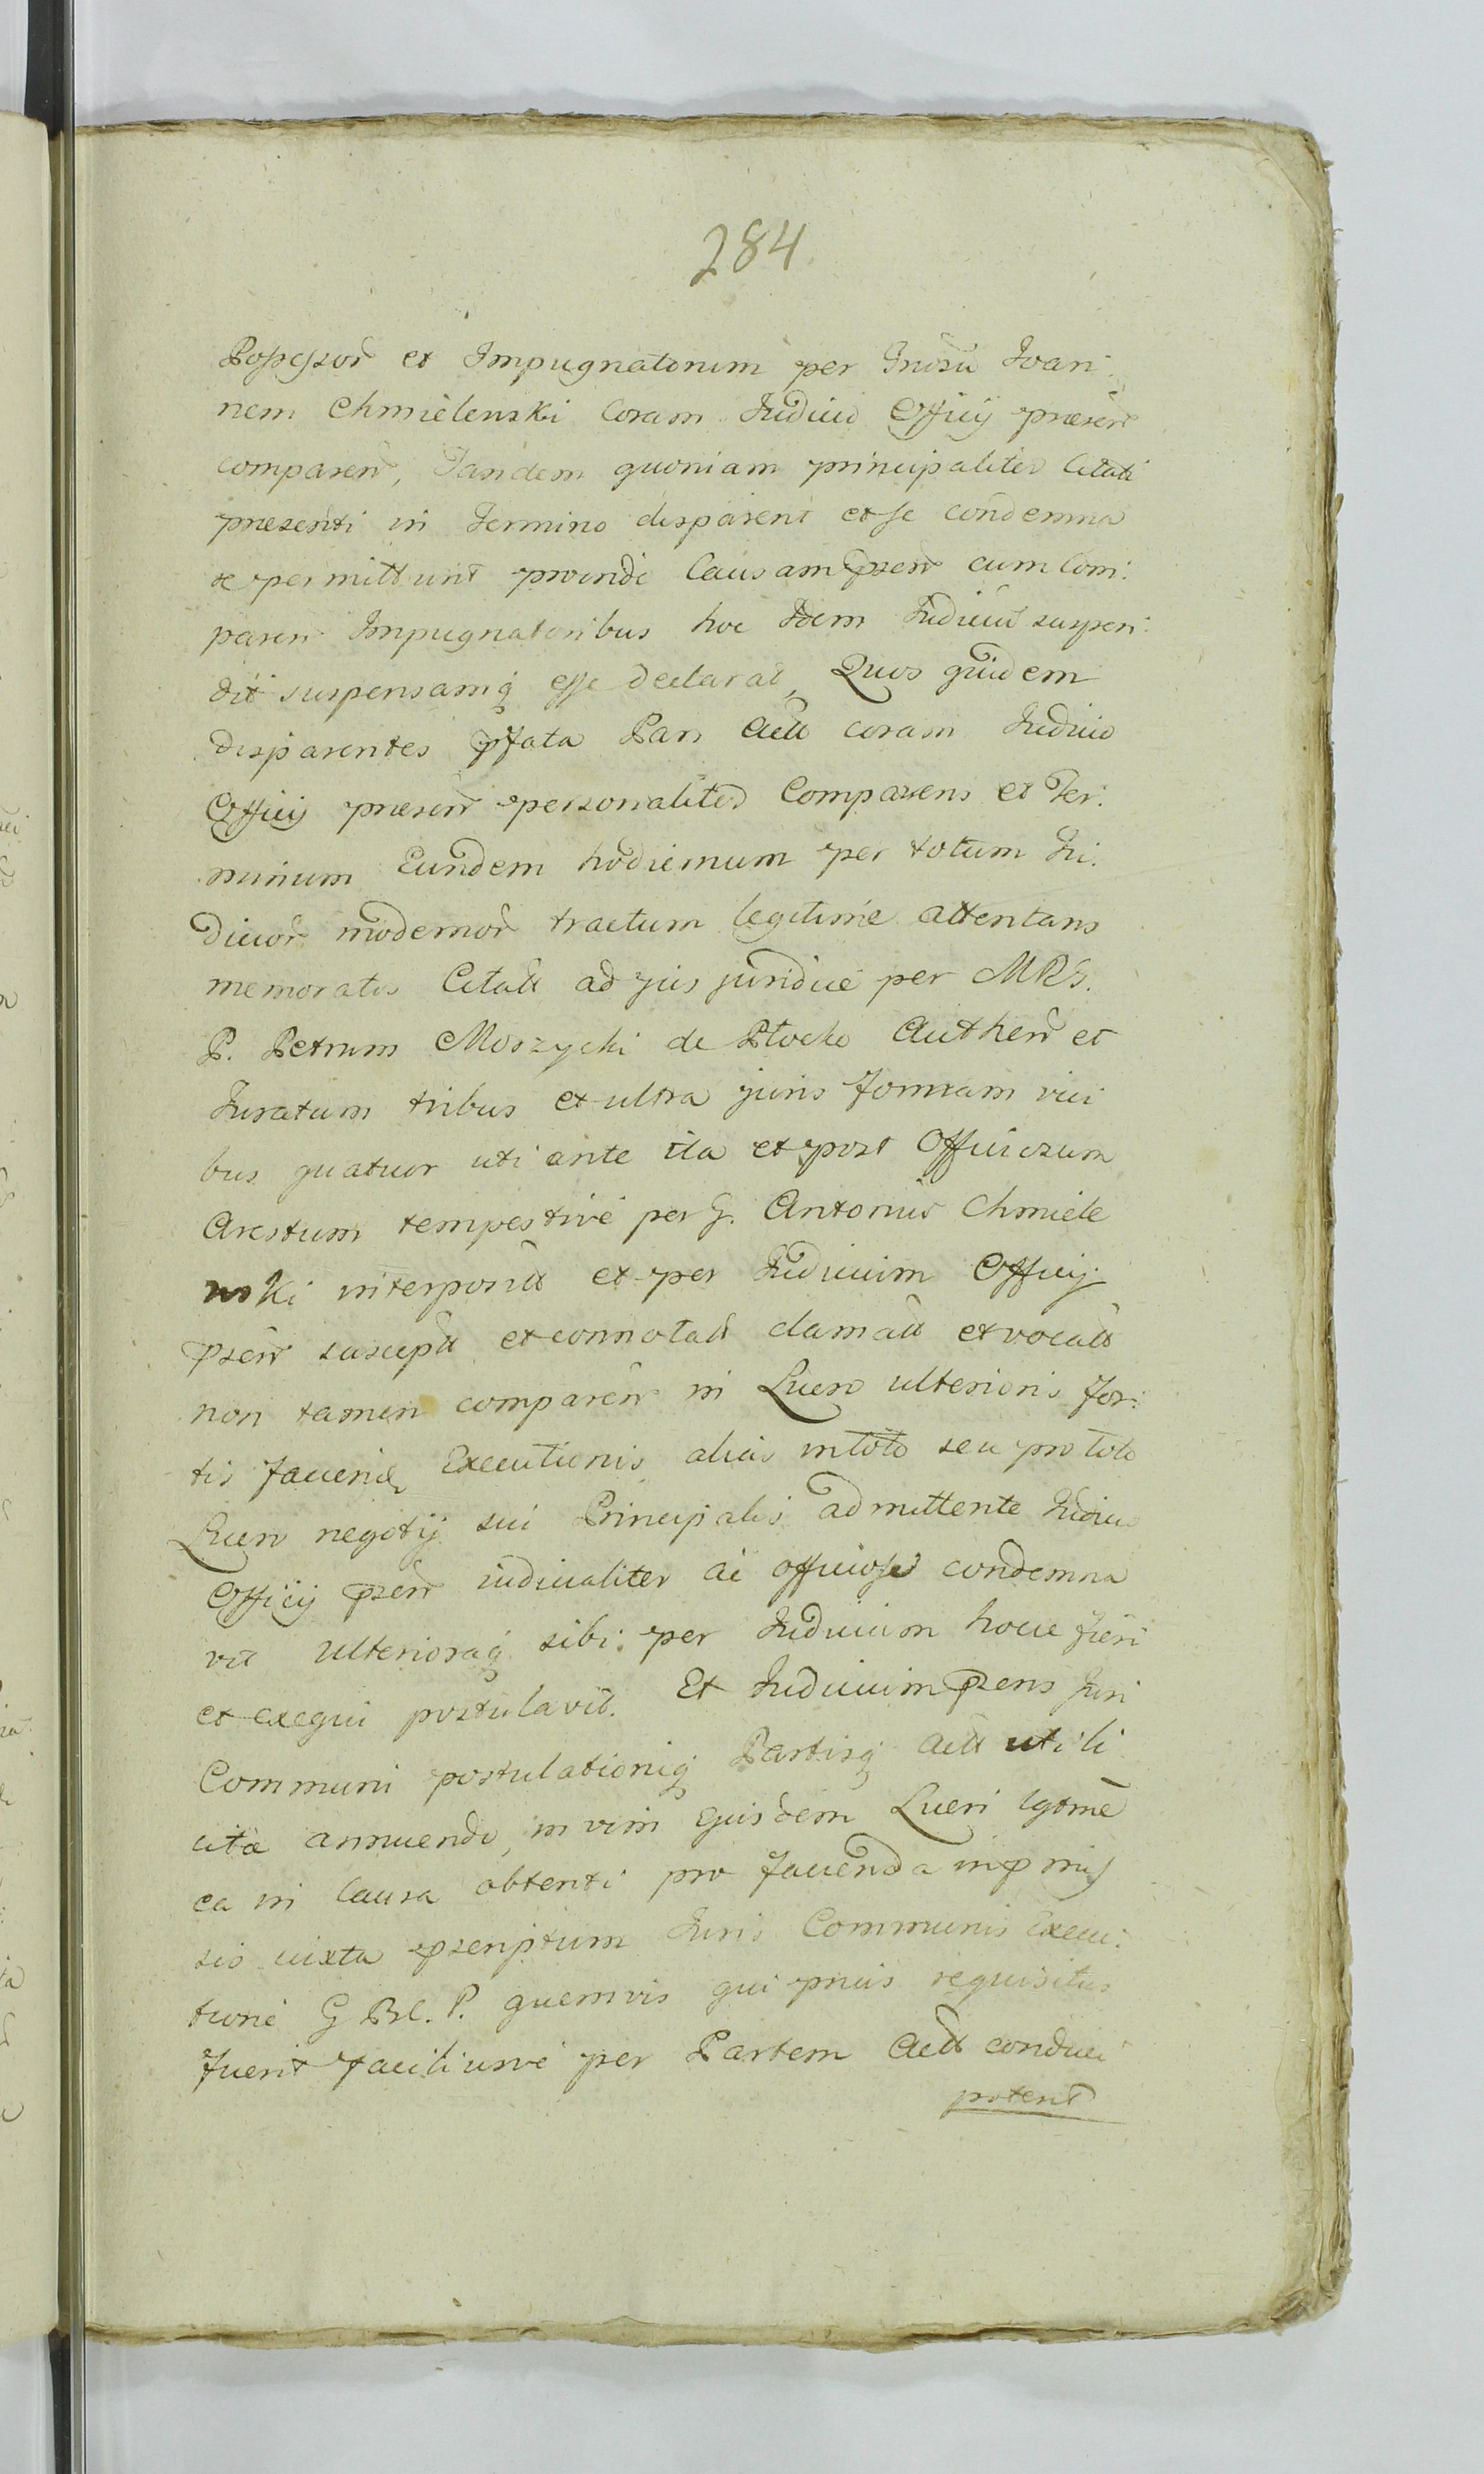 284
Possessor et Impugnatorum per Gnosu Joan:
nem Chmielewski Coram Judicio Officij præsen
comparen, Tandem quoniam principaliter Citati
præsenti in Termino disparent et se condemna
re permittunt proinde Causam pren cum Com:
paren Impugnatoribus hoc Idem Judiciu suspen:
dit suspensamq esse declarat, Quos quidem
disparentes pfata Pars Actt coram Judicio
Officij præsen personaliter Comparens et Ter:
minum Eundem hodiernum per totum Ju:
dicior modernor tractum legitime attentans
memoratos Citatt ad jus juridice per MRS.
P. Petrum Moszycki de Płocko Authen et
Juratum tribus et ultra juris formam vici
bus quatuor uti ante ita et post Officiosum
Arestum tempestive per G. Antoniu Chmiele
wski interposit et per Judicium Officij
psen suscept et connotatt clamatt et vocatt
non tamen comparen in Lucro ulterioris for:
tis faciendæ Executionis alias in toto seu pro toto
Lucro negotij sui Principalis admittente Judicio
Officij psen judicialiter ac officiose condemna
vit Ulterioraq sibi per Judicium hocce fieri
et exequi postulavit. Et Judicium psens Juri
Communi postulationiq Partisq Actt utili
citæ annuendo, in vim Ejusdem Lucri lgtmē
ea in Causa obtenti pro facienda in pmis
sis iuxta pscriptum Juris Communis Execu:
tione G Bl. P. quemvis qui prius requisitus
fuerit faciliusve per Partem Actt conduci
poterit